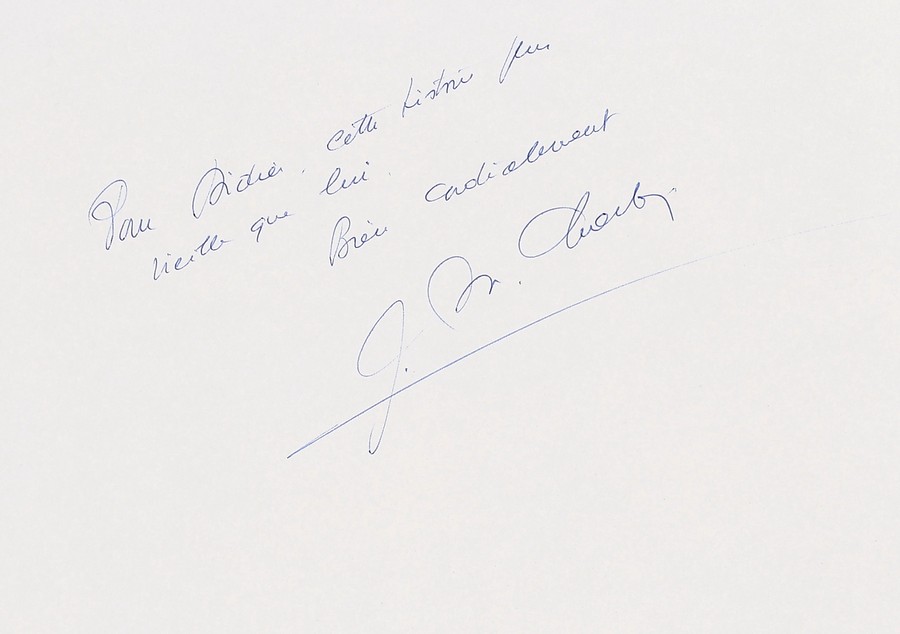 Pour Didier, cette histoire plus
vieille que lui.
Bien cordialement
J. M. Charlier